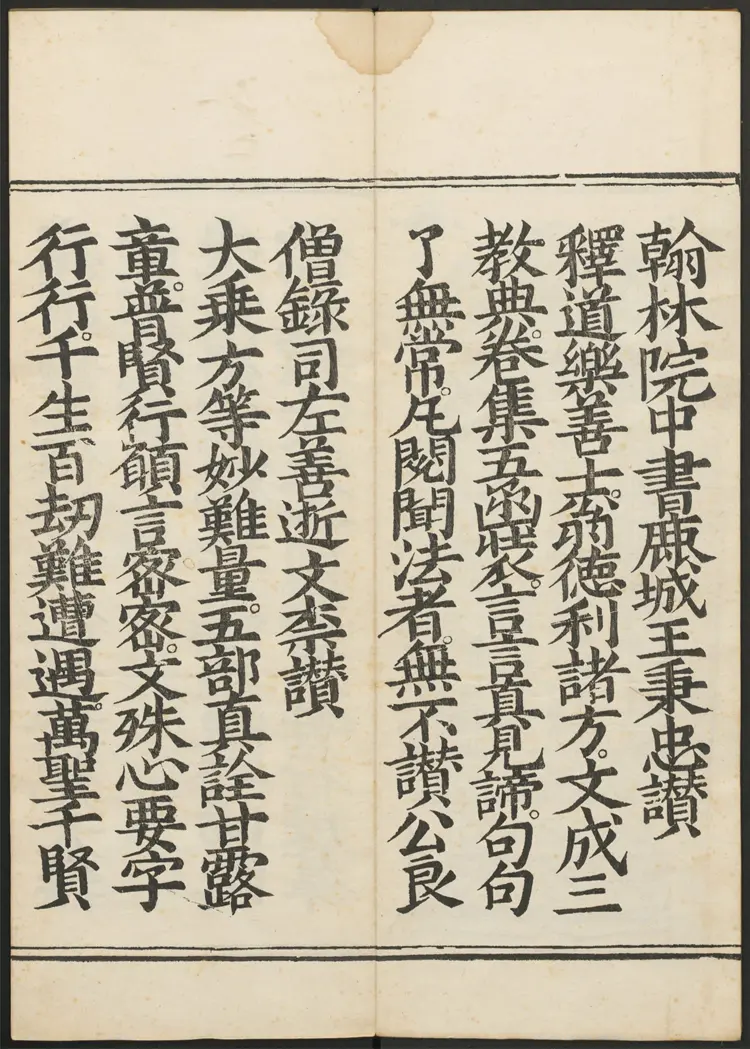 翰林院中書鹿城王秉忠讃
釋道樂善士。翁德利諸方。文成三
教典。卷集五函裝。言言真見諦。句句
了無常。凡閱聞法者。無不讃公良
僧錄司左善逝文柰讃
大乗方等妙難量。五部真詮甘露
章。普賢行願言密密。文殊心要字
行行。千生百劫難遭遇。萬聖千賢